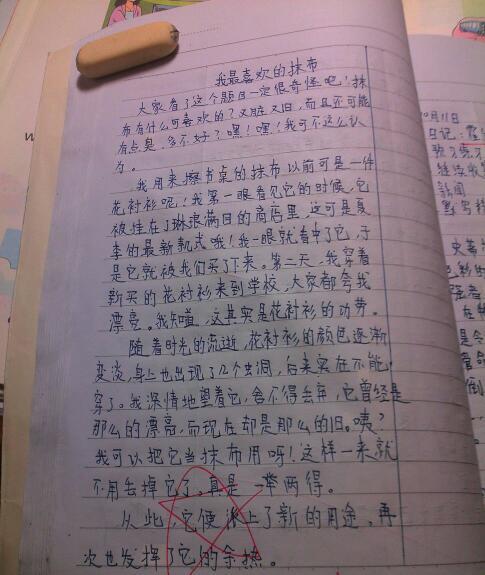 我最喜欢的抹布
大家看了这个题目一定很奇怪吧!抹
布有什么可喜欢的?又脏又旧,而且还可能
有点臭,多不好?嘿!嘿!我可不这么认
为。
我用来擦书桌的抹布以前可是一件
花衬衫呢!我第一眼看见它的时候,它
被挂在了琳琅满目的商店里,这可是夏
季的最新款式哦!我一眼就看中了它,于
是它就被我们买了下来。第二天,我穿着
新买的花衬衫来到学校,大家都夸我
漂亮。我知道,这其实是花衬衫的功劳。
随着时光的流逝,花衬衫的颜色逐渐
变淡,身上也出现了几个虫洞,后来实在不能
穿了。我深情地望着它,舍不得丢弃,它曾经是
那么的漂亮,而现在却是那么的旧。咦?
我可以把它当抹布用呀!这样一来就
不用丢掉它了,真是一举两得。
从此,它便派上了新的用途,再
次地发挥了它的余热。
10月11日
日记: